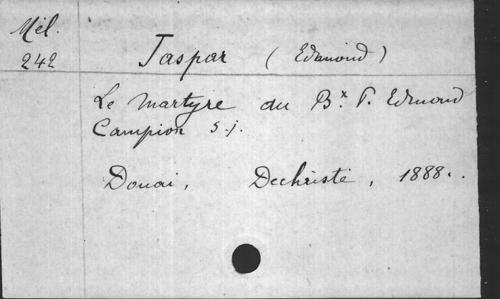 Mél.
242
Jaspar (Edmond)
Le Martyre du Bx P. Edmond
Campion s.j.
Douai, Dechristé, 1888.